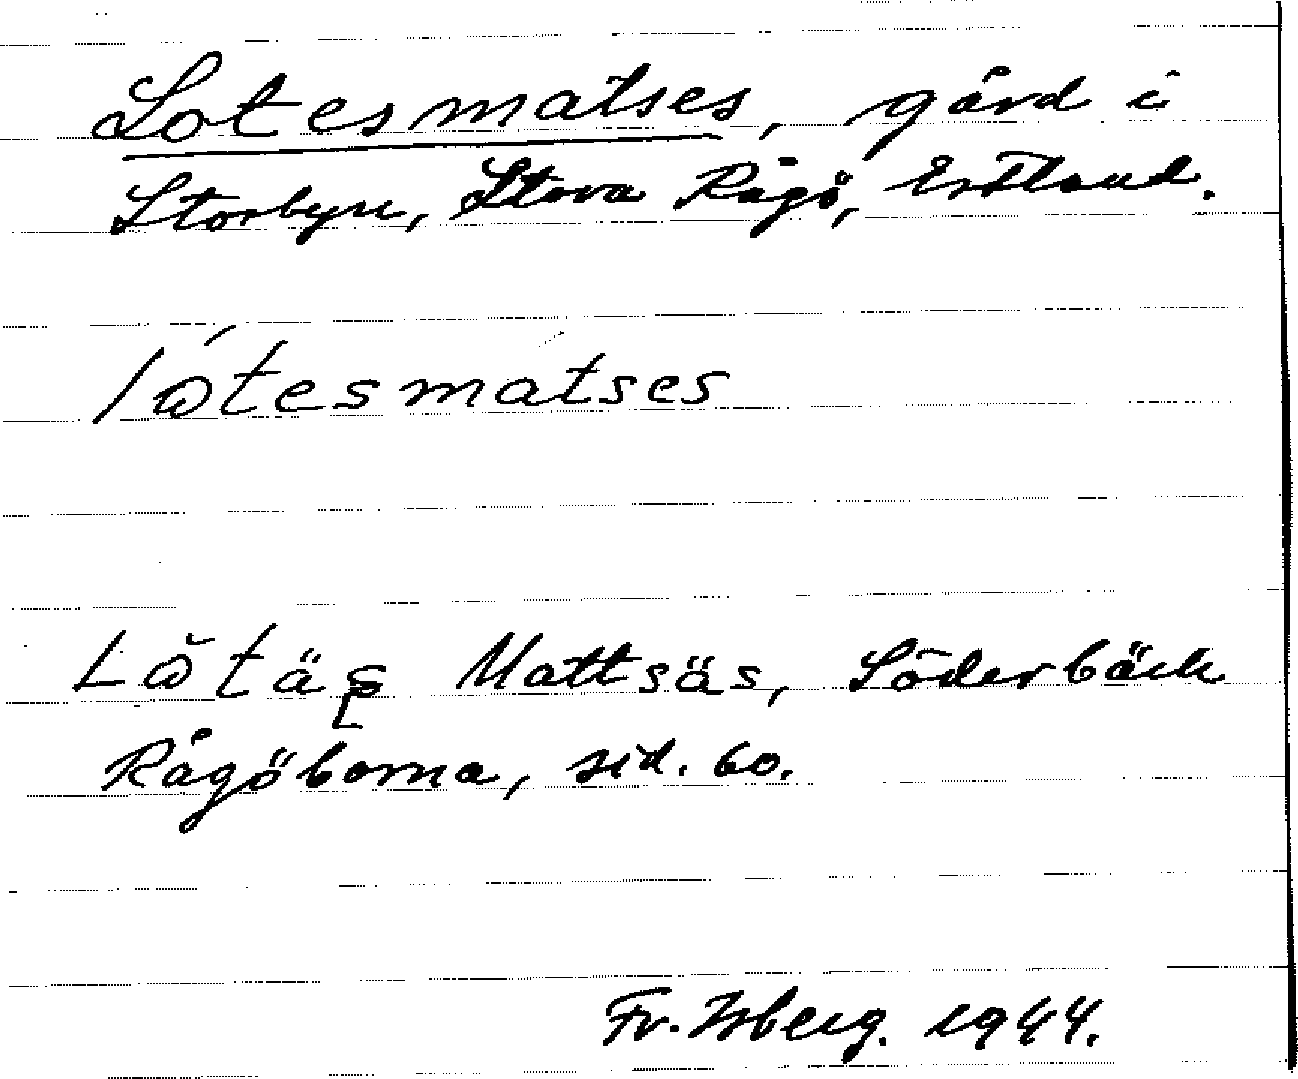 Lotesmatses, gård i
Storbyn, Stora Rågö, Estland.
lótesmátses
Lǒtäs Mattsäs, Söderbäck
Rågöborna, sid. 60.
Fr. Isberg. 1944.